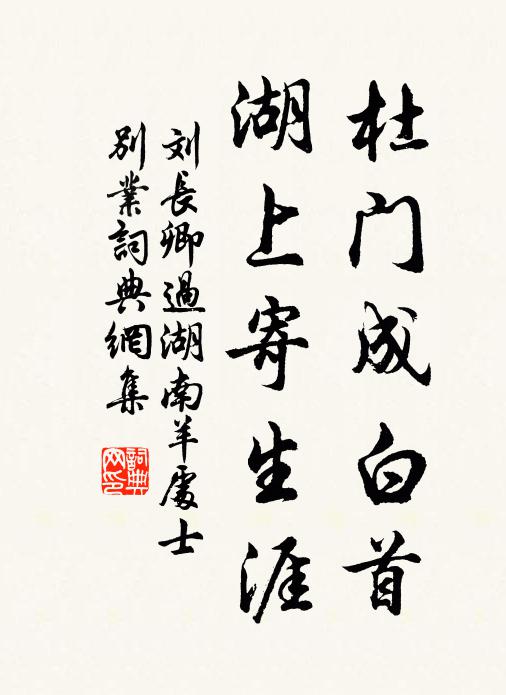 杜门成白首
湖上寄生涯
刘長卿過湖南羊處士
别業詞典網集
詞典网印